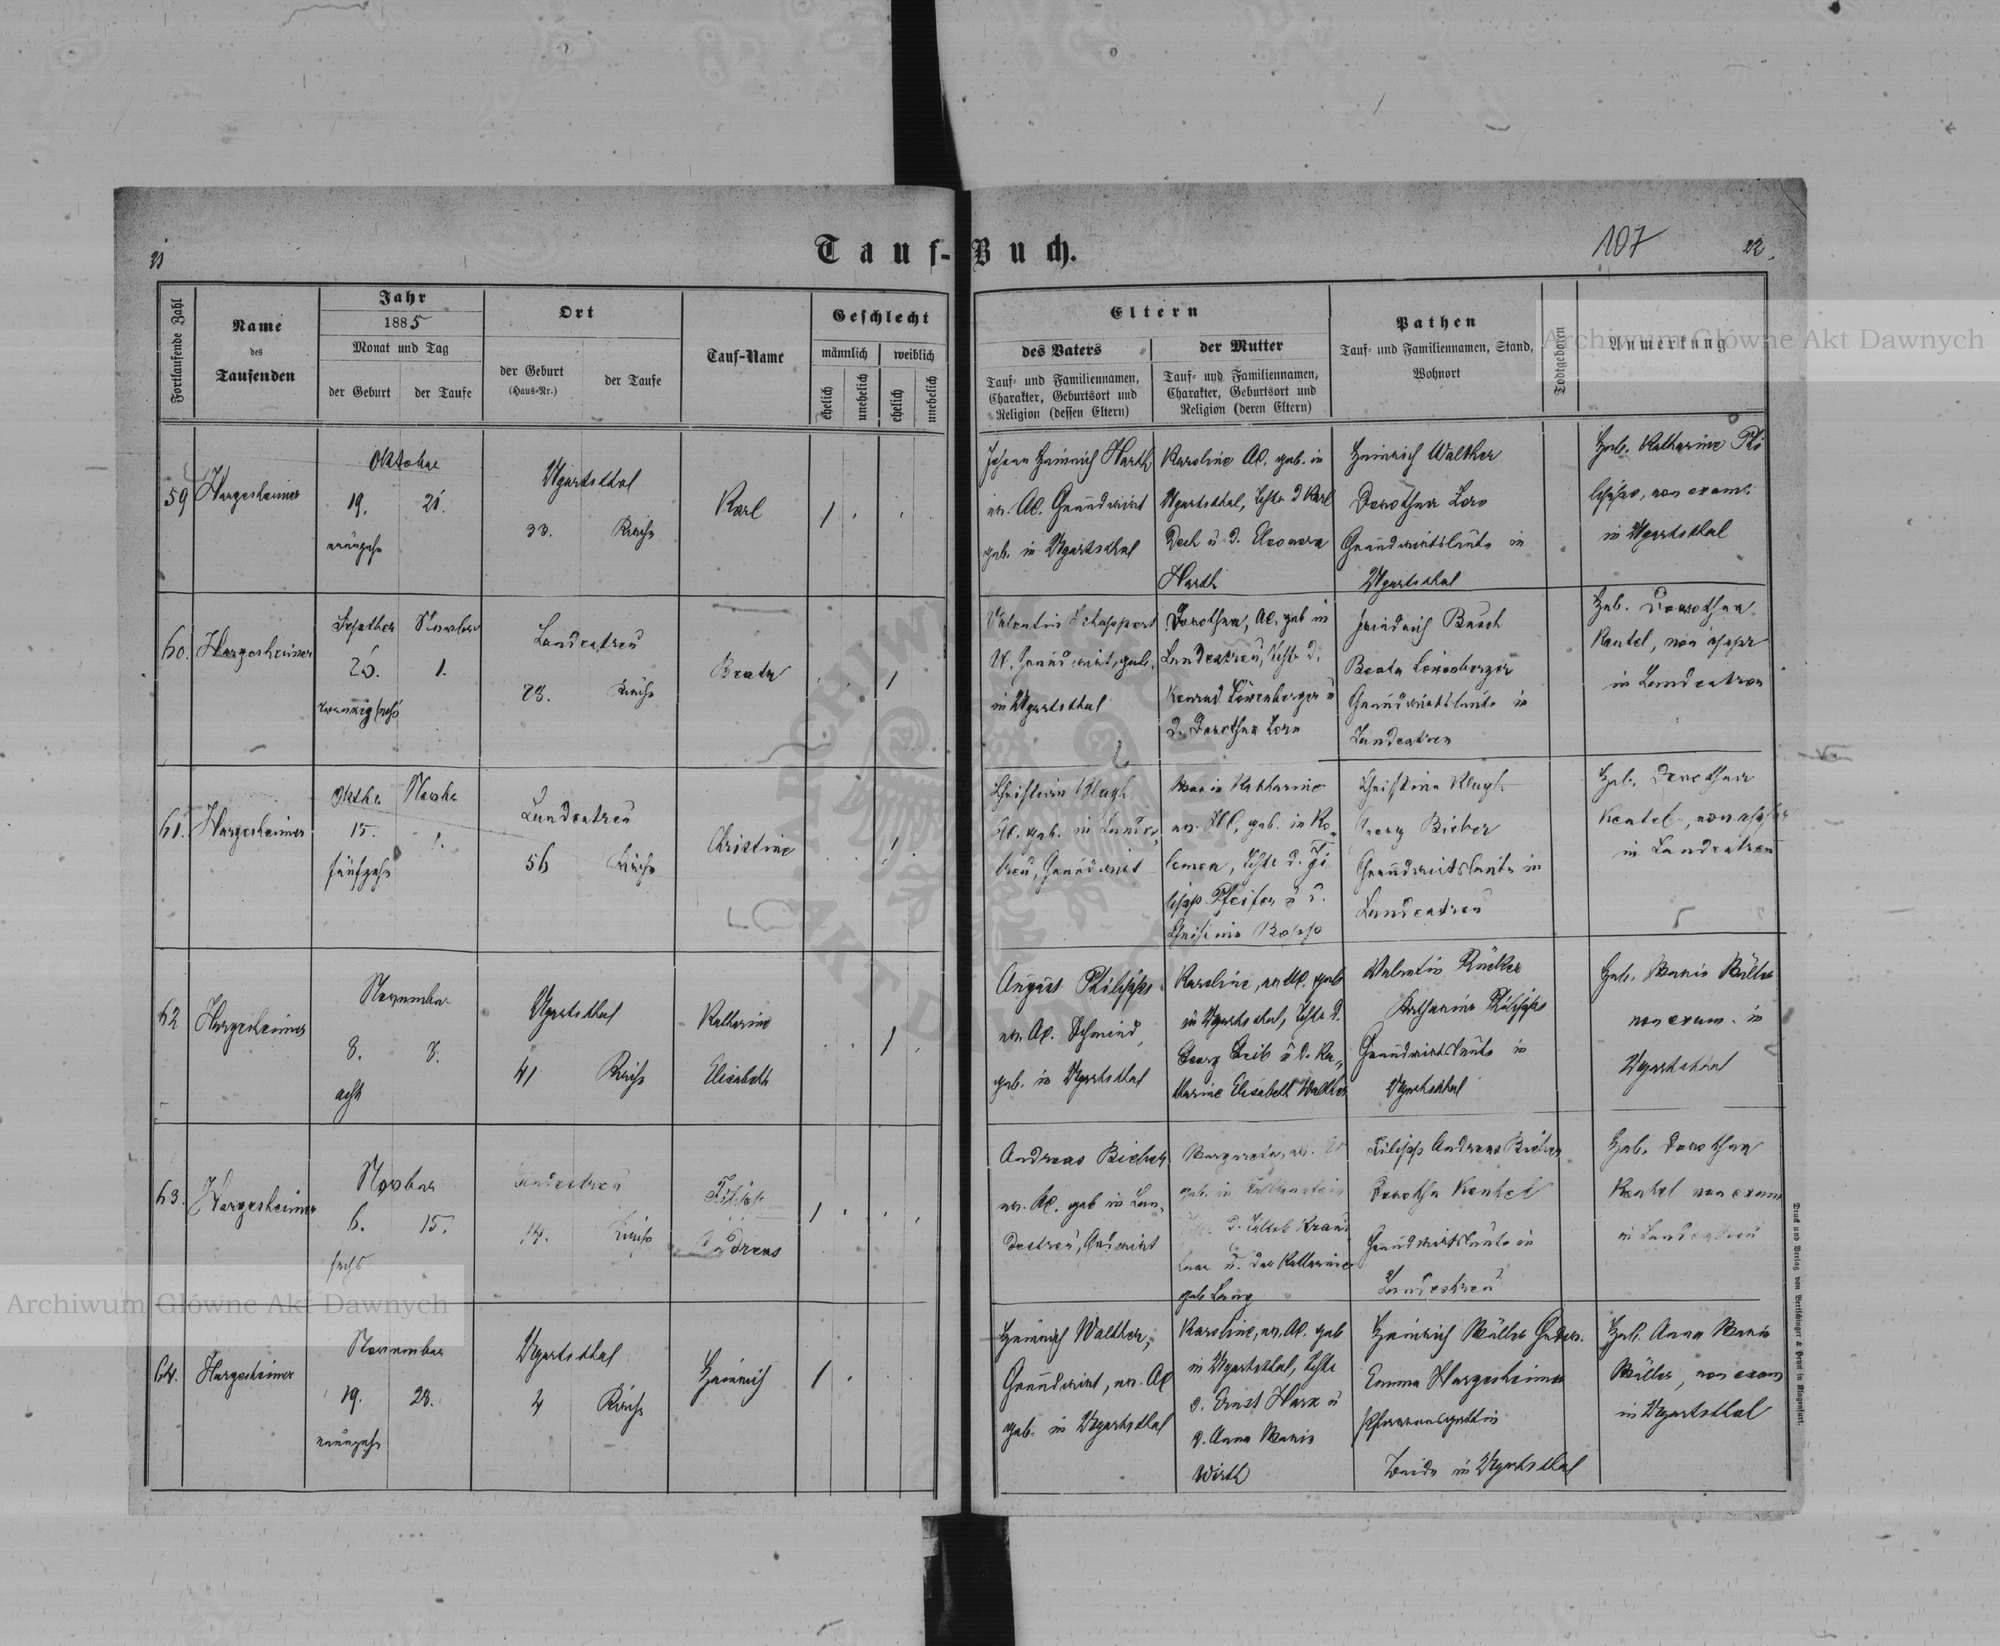 Tauf-Buch.
21
107
22.
Fortlaufende Zahl
Name
des
Taufenden
Jahr
1885
Monat und Tag
der Geburt
der Taufe
Ort
der Geburt
(Haus-Nr.)
der Taufe
Tauf-Name
Geschlecht
männlich
weiblich
ehelich
unehelich
ehelich
unehelich
Eltern
des Vaters
Tauf- und Familiennamen,
Charakter, Geburtsort und
Religion (dessen Eltern)
der Mutter
Tauf- und Familiennamen,
Charakter, Geburtsort und
Religion (deren Eltern)
Pathen
Tauf- und Familiennamen, Stand,
Wohnort
Todtgeboren
Anmerkung
Archiwum Główne Akt Dawnych
59
Hargesheimer
Oktober
19. 25.
neunzehn
Ugartsthal
33. Kirche
Karl
1
Johann Heinrich Harth
ev. AC. Grundwirt
geb. in Ugartsthal
Karoline AC. geb. in
Ugartsthal, Tochter d Karl
Dech u. d. Eleonora
Harth
Heinrich Walther
Dorothea Loro
Grundwirtsleute in
Ugartsthal
Heb. Katharine Phi
lipps, non exam.
in Ugartsthal
60.
Hargesheimer
Septber Novber
26. 1.
zwanzig sechs
Landestreu
28. Kirche
Beata
1
Valentin Schappert
Grundwirt, geb.
in Ugartsthal
Dorothea, AC. geb in
Landestreu, Tochter d.
Konrad Löwenberger u
d. Dorothea Loro
Friedrich Busch
Beata Löwenberger
Grundwirtsleute in
Landestreu
Heb. Dorothea
Kentel, non appr
in Landestreu
61.
Hargesheimer
Oktbr Novbr
15. 1.
fünfzehn
Landestreu
56 Kirche
Christine
1
Christian Klugh
AC. geb. in Landes-
treu, Grundwirt
Maria Katharine
ev. HC, geb. in Ko-
lomea, Tochter d. Fi
lipp Pfeifer u d.
Christine Bopp
Christine Klugh
Georg Bieber
Grundwirtsleute in
Landestreu
Heb. Dorothea
Kentel, non appr
in Landestreu
62
Hargesheimer
November
8. 8.
acht
Ugartsthal
41 Kirche
Katharine
Elisabeth
1
August Philipps
ev. AC. Schmied,
geb. in Ugartsthal
Karoline, ev AC. geb
in Ugartsthal, Tochter d.
Georg Leib u d. Ka-
tharine Elisabeth Walther
Valentin Rücker
Katharine Philipps
Grundwirtsleute in
Ugartsthal
Heb. Maria Müller
non exam. in
Ugartsthal
63.
Hargesheimer
Novber
6. 15.
sechs
Landestreu
14. Kirche
Filipp
Andreas
1
Andreas Bieber
ev. AC. geb in Lan-
destreu, Grdwirt
Margareta, ev.
geb. in Falkenstein
d. Jakob
u. der Katharine
geb Lang
Filipp Andreas Bieber
Dorothea Kentel
Grundwirtsleute in
Landestreu
Heb. Dorothea
Kentel non exam
in Landestreu
64.
Hargesheimer
November
19. 28.
neunzehn
Ugartsthal
4 Kirche
Heinrich
1
Heinrich Walther,
Grundwirt, ev. AC
geb. in Ugartsthal
Karoline, ev. AC. geb
in Ugartsthal, Tochter
d. Ernst Harz u
d. Anna Maria
Wirth
Heinrich Müller
Emma Hargesheimer
Pfarrersgattin
Beide in Ugartsthal
Heb. Anna Maria
Müller, non exam
in Ugartsthal
Archiwum Główne Akt Dawnych
Druck und Verlag von Bertschinger & Heyn in Klagenfurt.